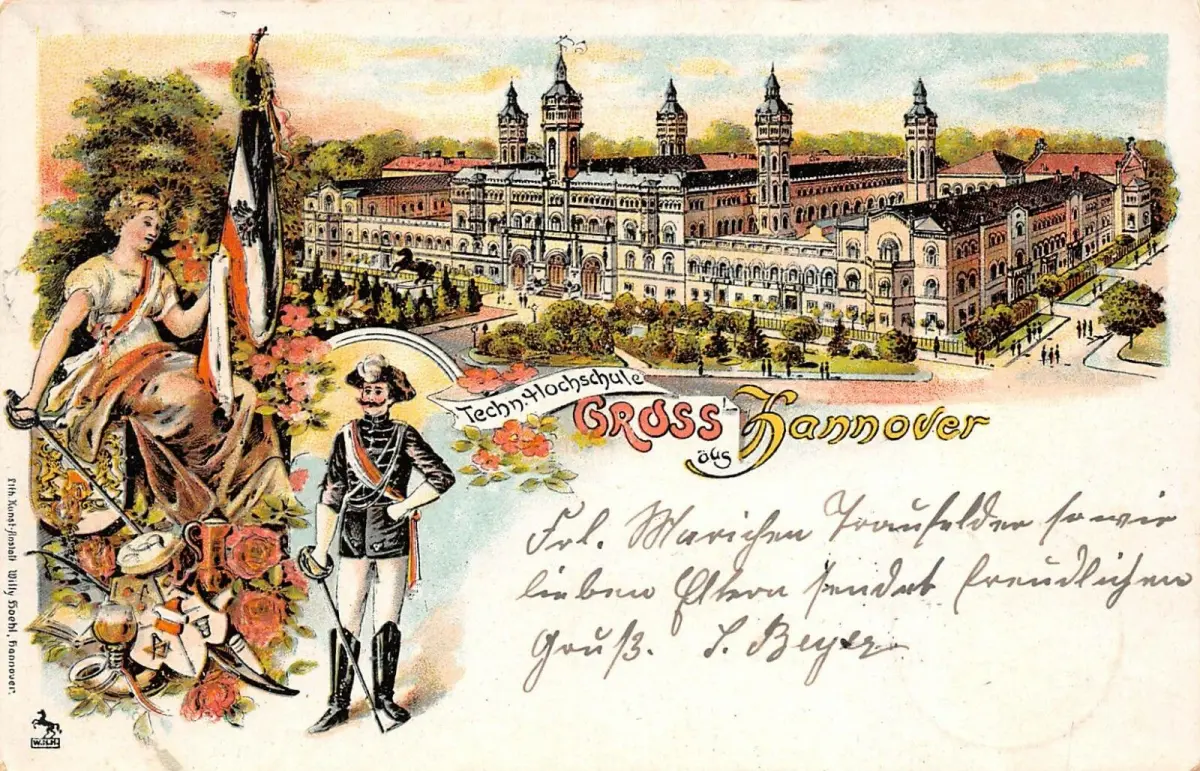 Techn. Hochschule
GRUSS
aus Hannover
Frl. Mariechen Traufelder sowie
lieben Eltern sendet freundlichen
Gruß. S. Beyer
Lith. Kunst-Anstalt Willy Hoehl, Hannover.
W.H.H.